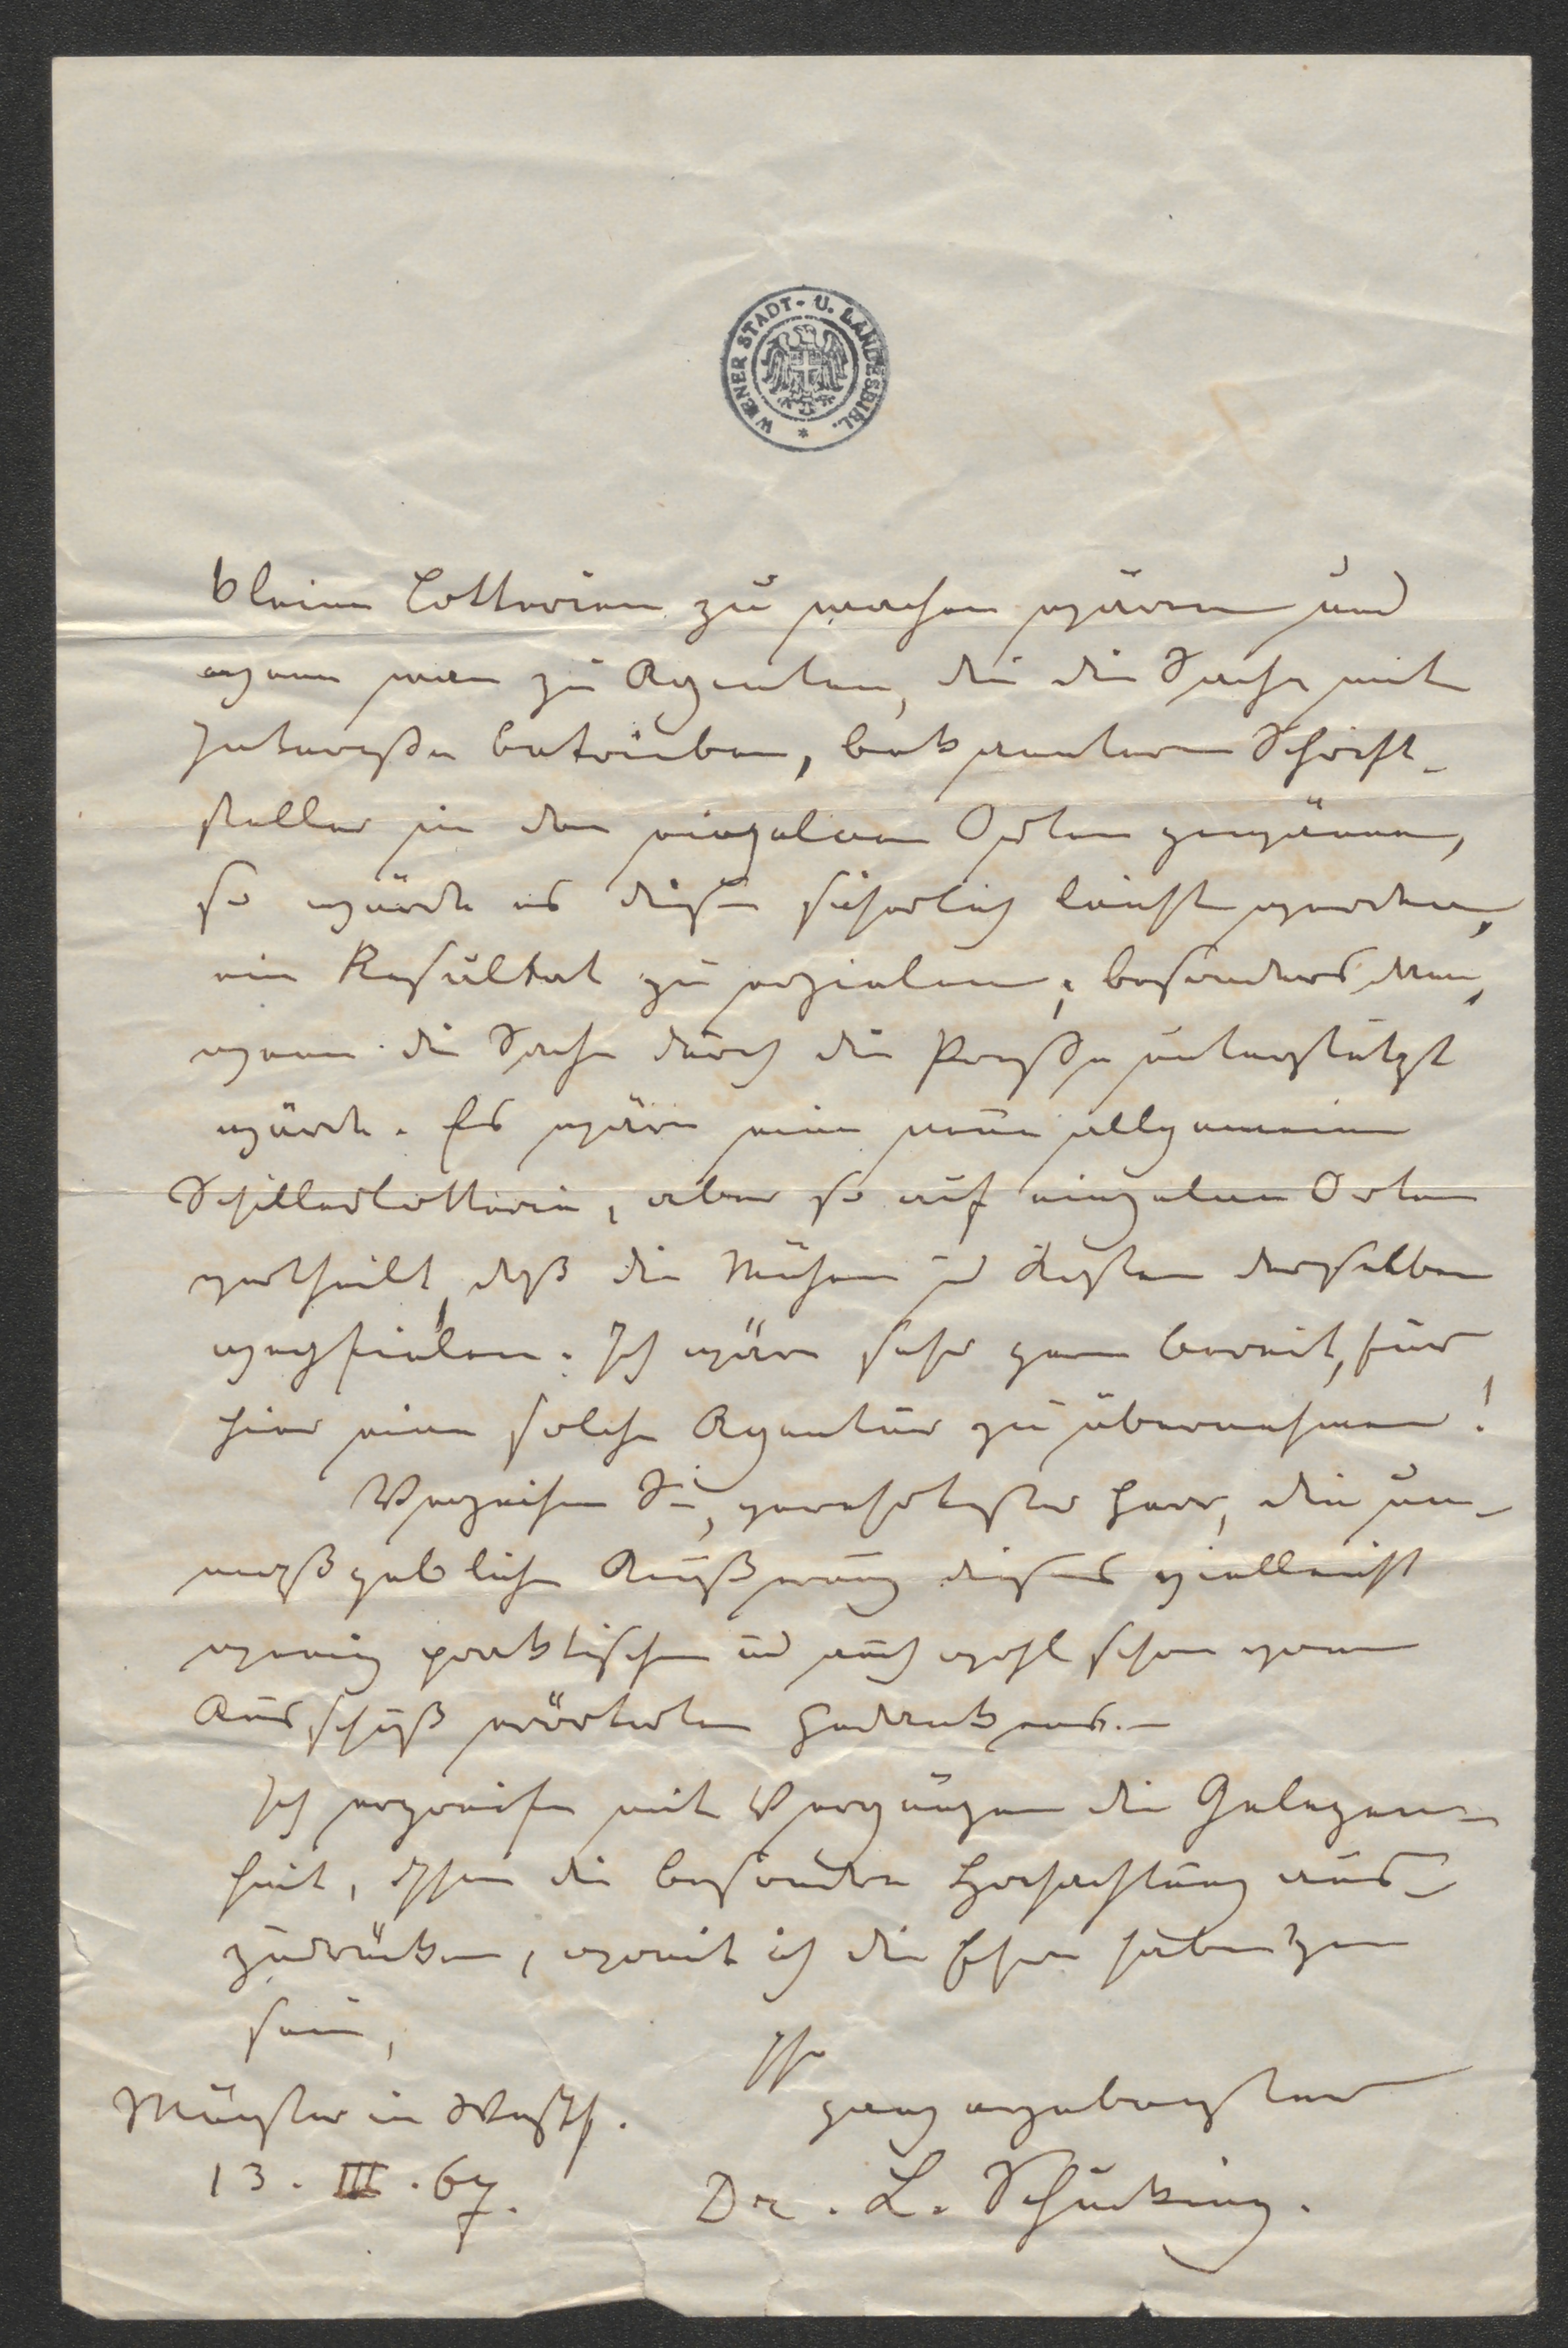 WIENER STADT- U. LANDESBIBL. *
kleine Lotterien zu machen wären und
wenn man zu Agenten, die die Sache mit
Interesse betrieben, bekanntere Schrift-
steller in den einzelnen Orten gewänne,
so würde es diesen sicherlich leicht werden,
ein Resultat zu erzielen; besonders dann,
wenn die Sache durch die Presse unterstützt
würde. Es wäre eine neue allgemeine
Schillerlotterie, aber so auf einzelne Orten
vertheilt, daß die Mühen u Kosten derselben
wegfielen. Ich wäre sehr gern bereit, für
hier eine solche Agentur zu übernehmen!
Verzeihen Sie, verehrtester Herr, die un-
maßgebliche Äußerung dieses vielleicht
wenig praktischen u auch wohl schon vom
Ausschuß erörterten Gedankens. —
Ich ergreife mit Vergnügen die Gelegen-
heit, Ihnen die besondere Hochachtung aus-
zudrücken, womit ich die Ehre habe zu
sein,
Ihr
ganz ergebenster
Münster in Westf.
13. III. 67.
Dr. L. Schücking.